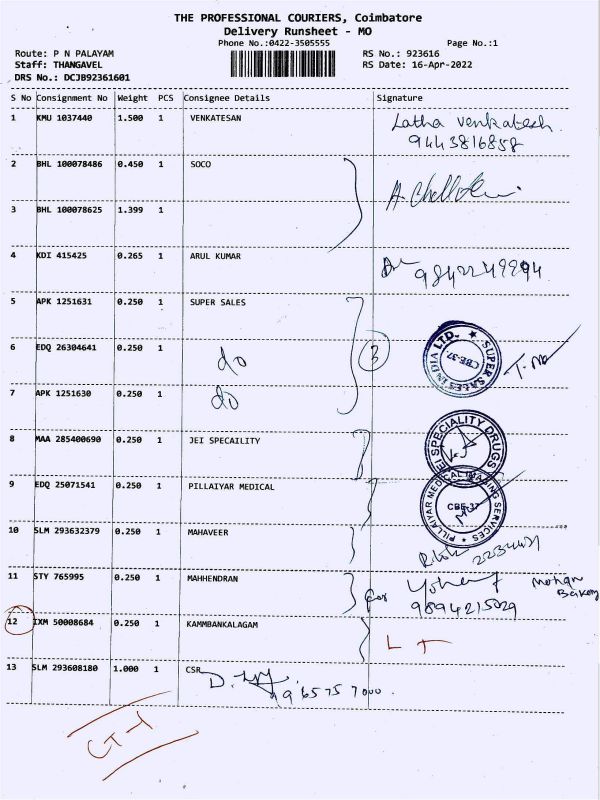 THE PROFESSIONAL COURIERS, Coimbatore
Delivery Runsheet - MO
Phone No.:0422-3505555 Page No.:1
Route: P N PALAYAM RS No.: 923616
Staff: THANGAVEL RS Date: 16-Apr-2022
DRS No.: DCJB92361601
S No Consignment No Weight PCS Consignee Details Signature
1 KMU 1037440 1.500 1 VENKATESAN Latha Venkatesh
9443816858
2 BHL 100078486 0.450 1 SOCO
3 BHL 100078625 1.399 1
4 KDI 415425 0.265 1 ARUL KUMAR
5 APK 1251631 0.250 1 SUPER SALES
6 EDQ 26304641 0.250 1 do 3
SUPER SALES INDIA LTD. CBE-37
7 APK 1251630 0.250 1 do
8 MAA 285400690 0.250 1 JEI SPECAILITY
JEI SPECIALITY DRUGS
9 EDQ 25071541 0.250 1 PILLAIYAR MEDICAL
PILLAIYAR MEDICAL SERVICES CBE-37
10 SLM 293632379 0.250 1 MAHAVEER
11 STY 765995 0.250 1 MAHHENDRAN for Mohan Bakery
9894215029
12 IXM 50008684 0.250 1 KAMMBANKALAGAM L T
13 SLM 293608180 1.000 1 CSR
CT-1